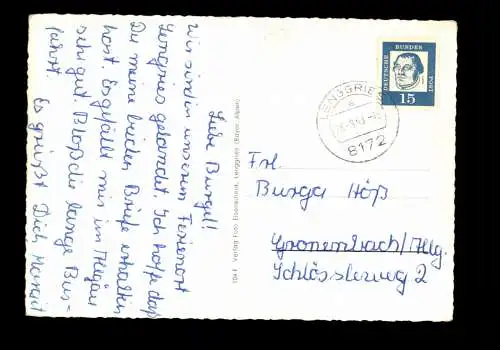 Liebe Burgel!
Wir sind in unserem Ferienort
Lengries gelandet. Ich hoffe daß
Du meine beiden Briefe erhalten
hast. Es gefällt mir im Allgäu
sehr gut. Bloß die lange Bus-
fahrt.
Es grüßt Dich Margit
Verlag Foto Eisenschink, Lenggries (Bayer. Alpen)
LENGGRIES
a
8172
DEUTSCHE BUNDESPOST
15
Frl.
Burga Höß
Grönenbach/Allg.
Schlössleweg 2